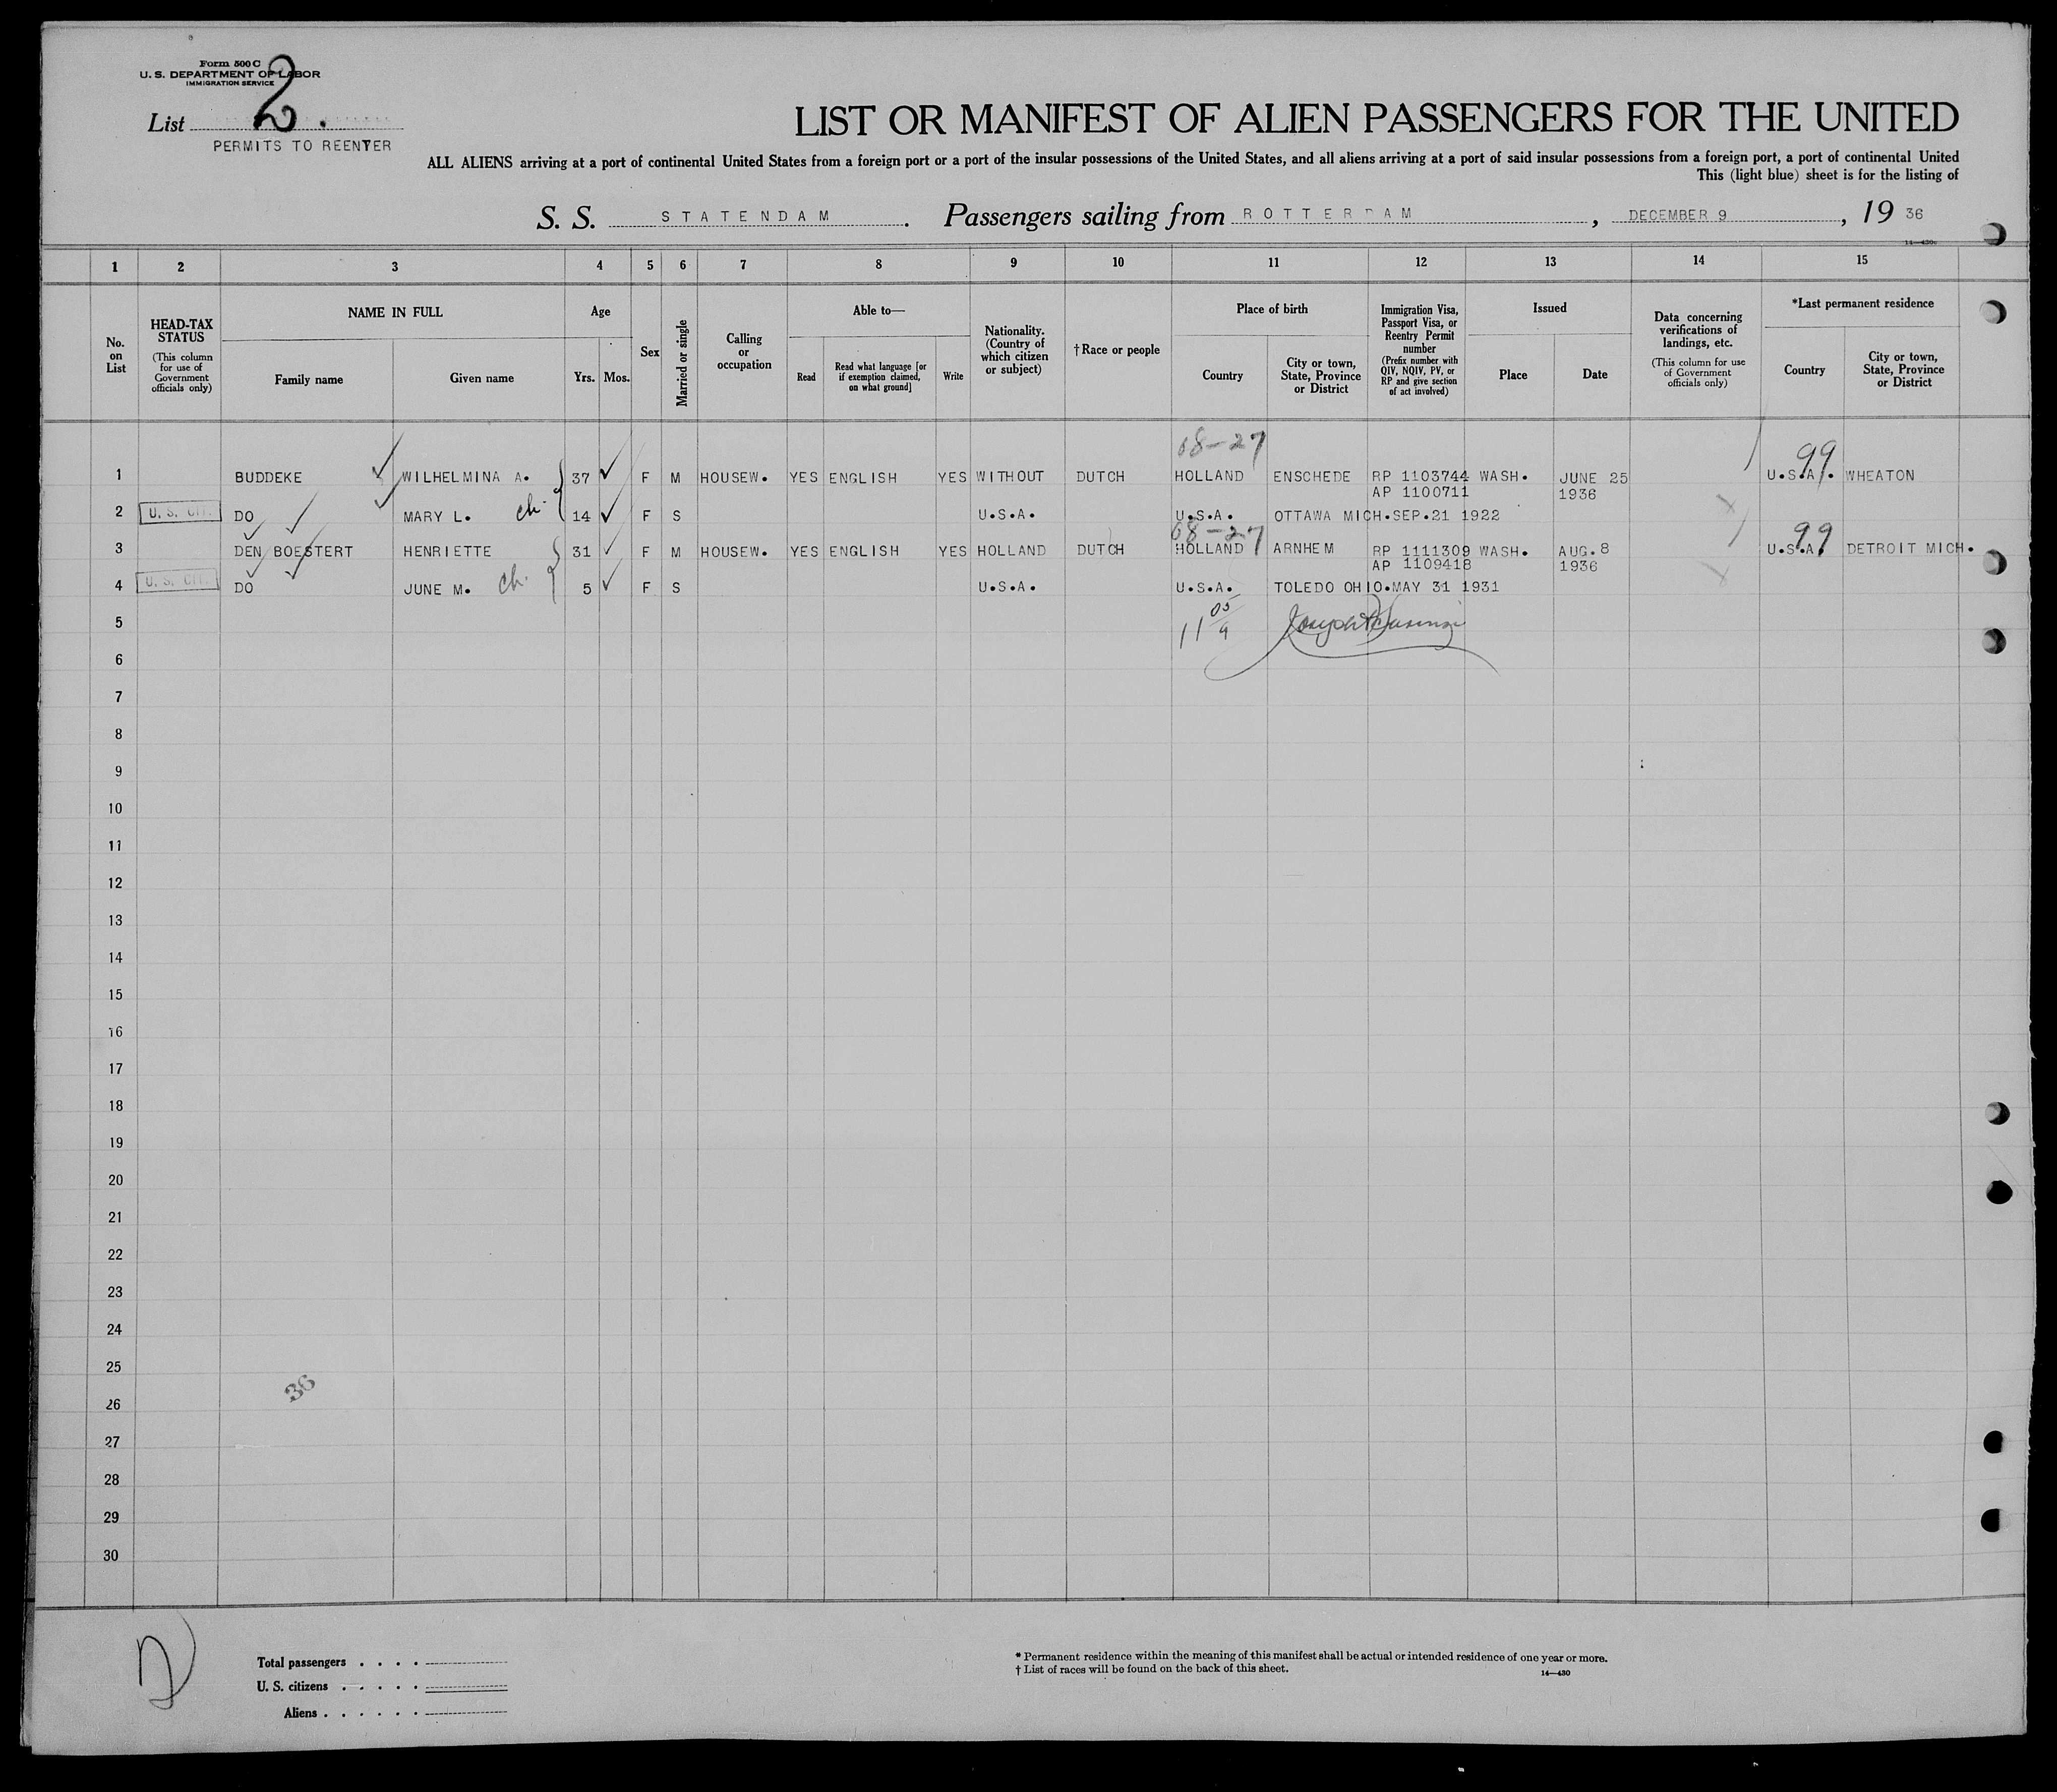 Form 500 C
U. S. DEPARTMENT OF LABOR
IMMIGRATION SERVICE
List 2.
PERMITS TO REENTER
LIST OR MANIFEST OF ALIEN PASSENGERS FOR THE UNITED
ALL ALIENS arriving at a port of continental United States from a foreign port or a port of the insular possessions of the United States, and all aliens arriving at a port of said insular possessions from a foreign port, a port of continental United
This (light blue) sheet is for the listing of
S. S. STATENDAM. Passengers sailing from ROTTERDAM, DECEMBER 9, 19 36
14—430c
1 2 3 4 5 6 7 8 9 10 11 12 13 14 15
No. on List
HEAD-TAX STATUS
(This column for use of Government officials only)
NAME IN FULL
Family name
Given name
Age
Yrs. Mos.
Sex
Married or single
Calling or occupation
Able to—
Read
Read what language [or if exemption claimed, on what ground]
Write
Nationality. (Country of which citizen or subject)
†Race or people
Place of birth
Country
City or town, State, Province or District
Immigration Visa, Passport Visa, or Reentry Permit number
(Prefix number with QIV, NQIV, PV, or RP and give section of act involved)
Issued
Place
Date
Data concerning verifications of landings, etc.
(This column for use of Government officials only)
*Last permanent residence
Country
City or town, State, Province or District
68-27 99
1 BUDDEKE WILHELMINA A. 37 F M HOUSEW. YES ENGLISH YES WITHOUT DUTCH HOLLAND ENSCHEDE RP 1103744 WASH. JUNE 25 U.S.A. WHEATON
AP 1100711 1936
2 U. S. CIT. DO MARY L. ch. 14 F S U.S.A. U.S.A. OTTAWA MICH.SEP.21 1922
68-27 99
3 DEN BOESTERT HENRIETTE 31 F M HOUSEW. YES ENGLISH YES HOLLAND DUTCH HOLLAND ARNHEM RP 1111309 WASH. AUG.8 U.S.A. DETROIT MICH.
AP 1109418 1936
4 U. S. CIT. DO JUNE M. ch. 5 F S U.S.A. U.S.A. TOLEDO OHIO.MAY 31 1931
5
6
7
8
9
10
11
12
13
14
15
16
17
18
19
20
21
22
23
24
25
36
26
27
28
29
30
Total passengers . . . .
U. S. citizens . . . . .
Aliens . . . . . .
* Permanent residence within the meaning of this manifest shall be actual or intended residence of one year or more.
† List of races will be found on the back of this sheet.
14—430